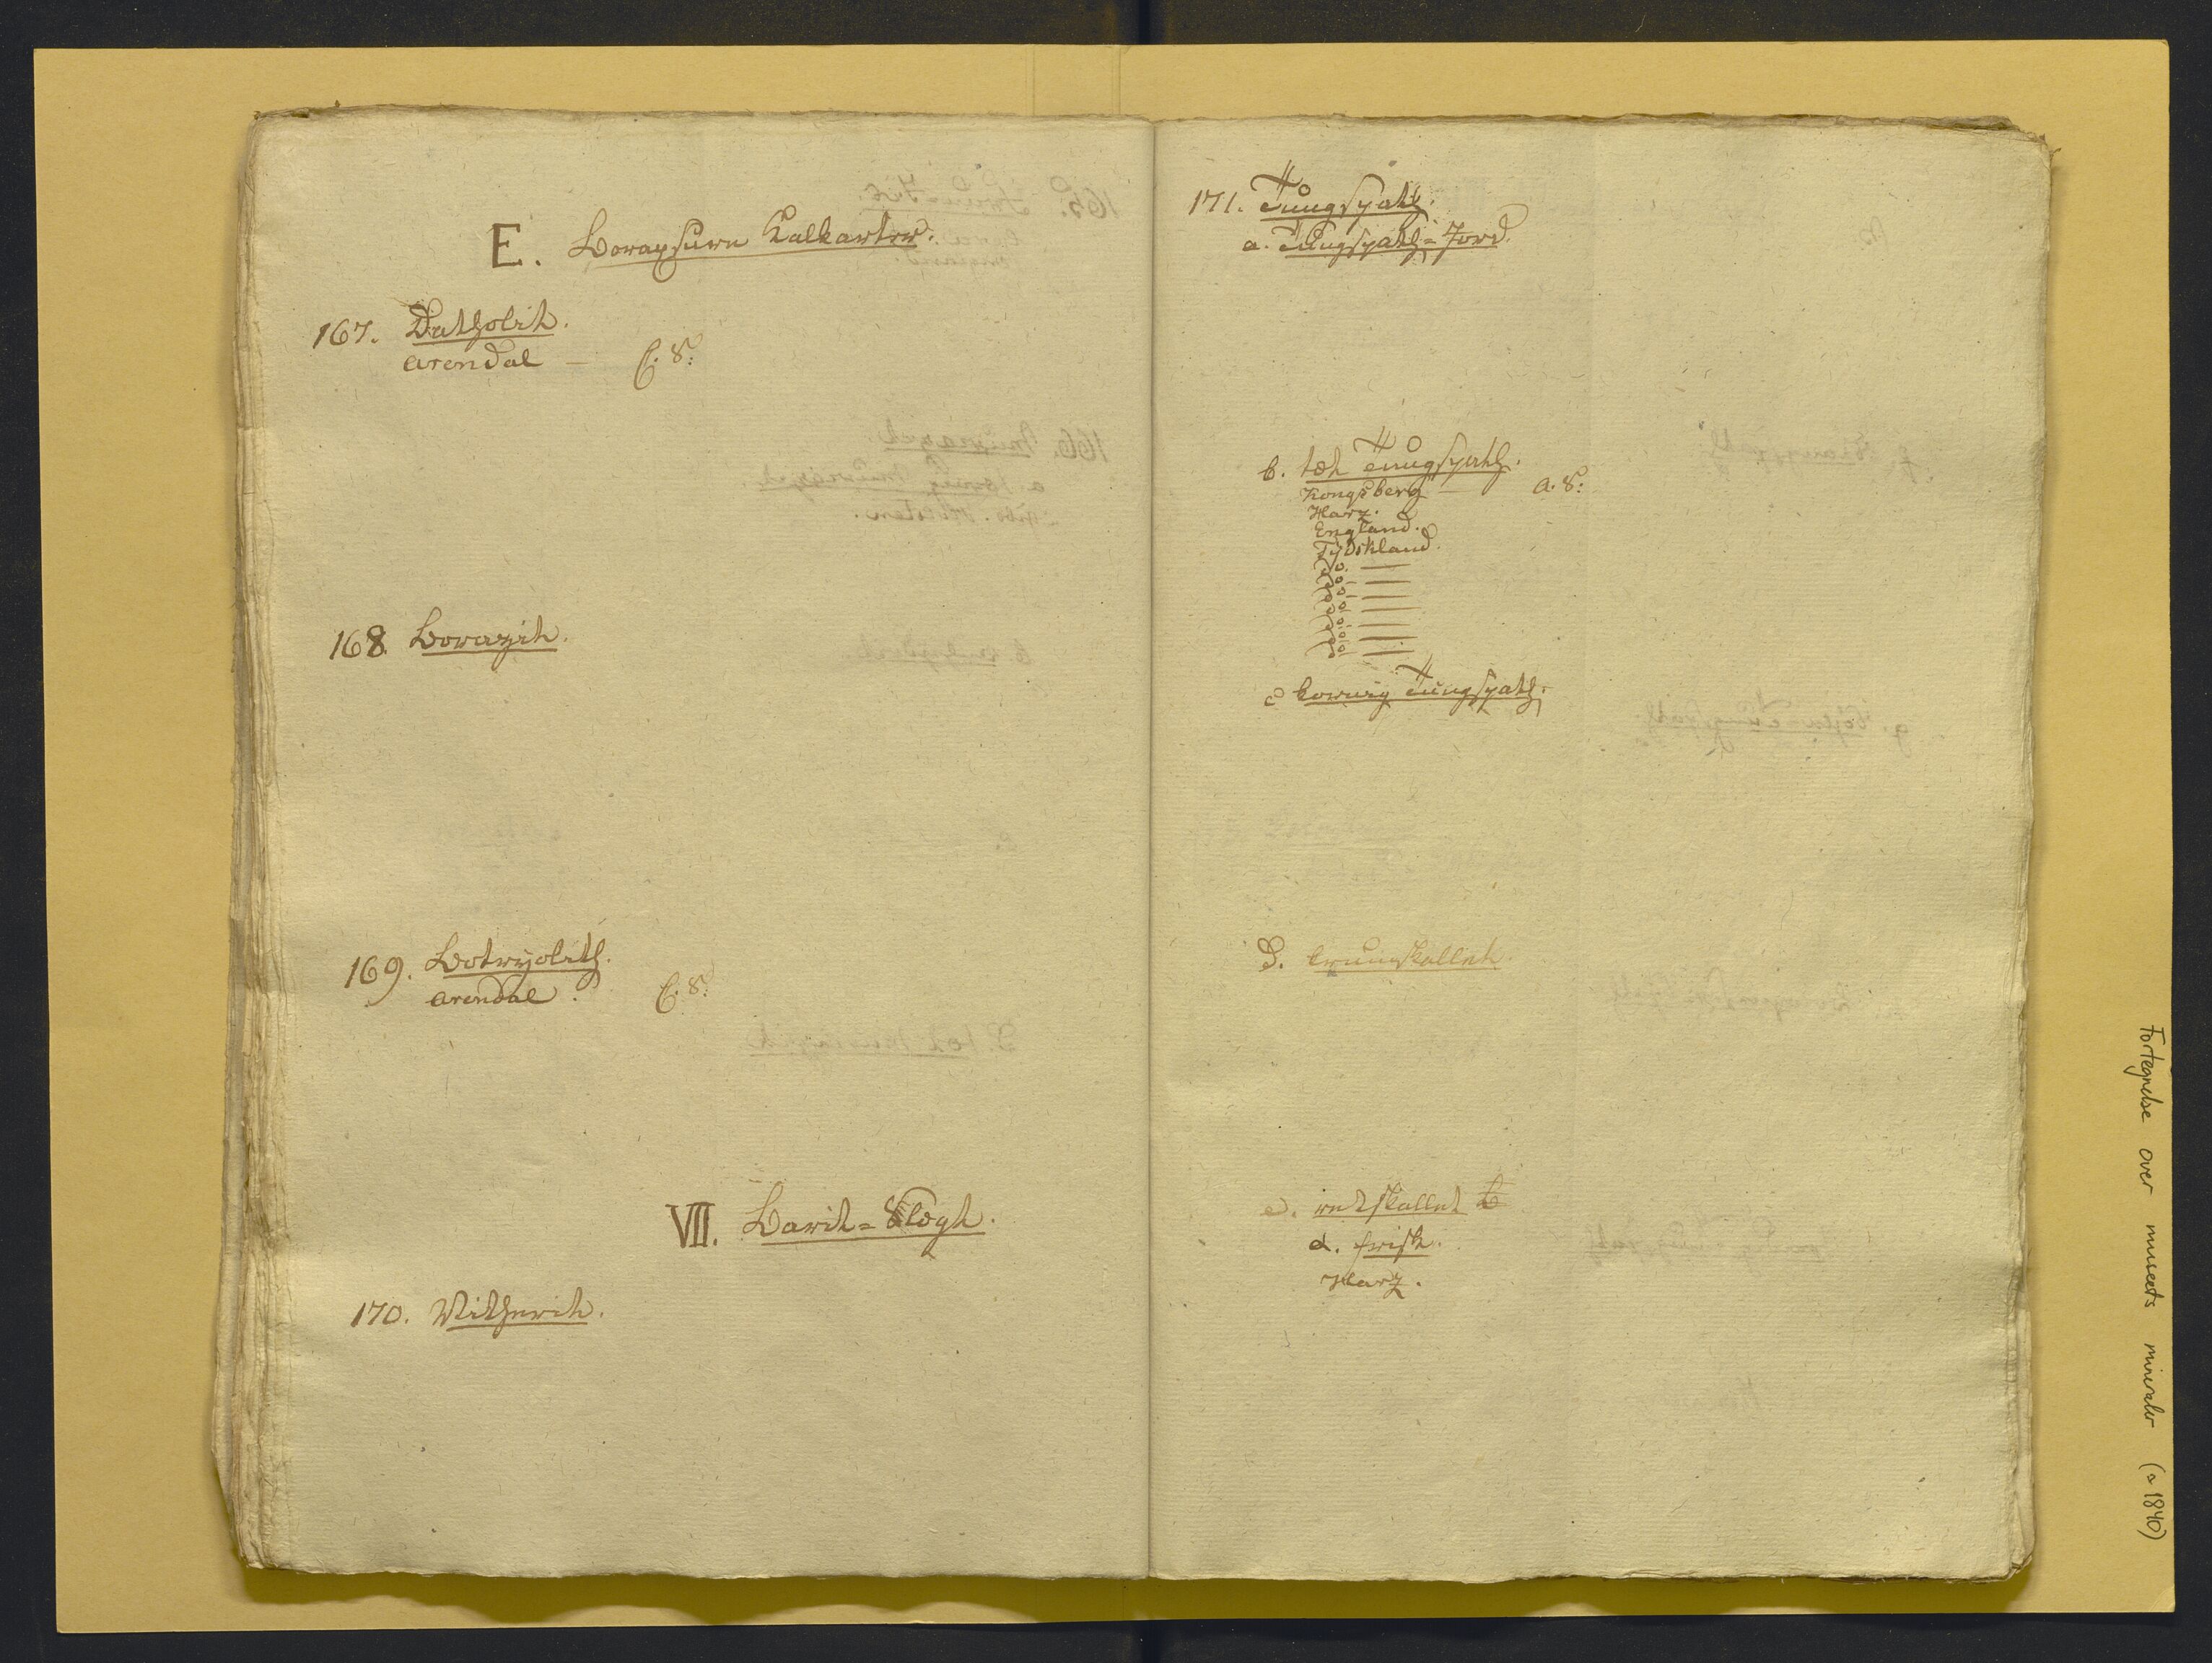 E. Boraxsure Kalkarter.
167. Datholit.
Arendal — C. 8:
168. Boracit.
169. Botryolith.
Arendal. C. 8:
VII. Barit=Slægt.
170. Witherit.
171. Tungspath.
a. Tungspath=Jord.
b. tæt Tungspath.
Kongsberg — A. 8:
Harz.
England.
Tydskland.
do. —
do —
do —
do —
do —
do —
do —
c kornig Tungspath.
d. krumskallet.
e. retskallet
α. frisk.
Harz.
Fortegnelse over museets mineraler (ca 1840)